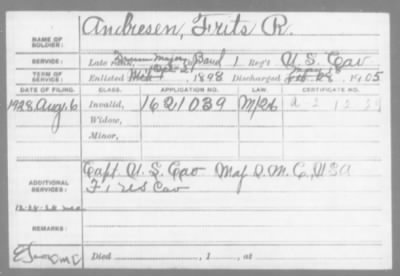 NAME OF SOLDIER: Andresen, Frits R.
SERVICE: Late rank, Drum Major Band 1 Reg't U. S. Cav
TERM OF SERVICE: Enlisted 1898 Discharged 1905
DATE OF FILING. CLASS. APPLICATION NO. LAW. CERTIFICATE NO.
1928 Aug. 6 Invalid, 1621039 M/26 A 2 12 39
Widow,
Minor,
ADDITIONAL SERVICES: Capt. U. S. Cav Maj O. M. C. USA
F, 1 US Cav
REMARKS:
Died , 1 , at